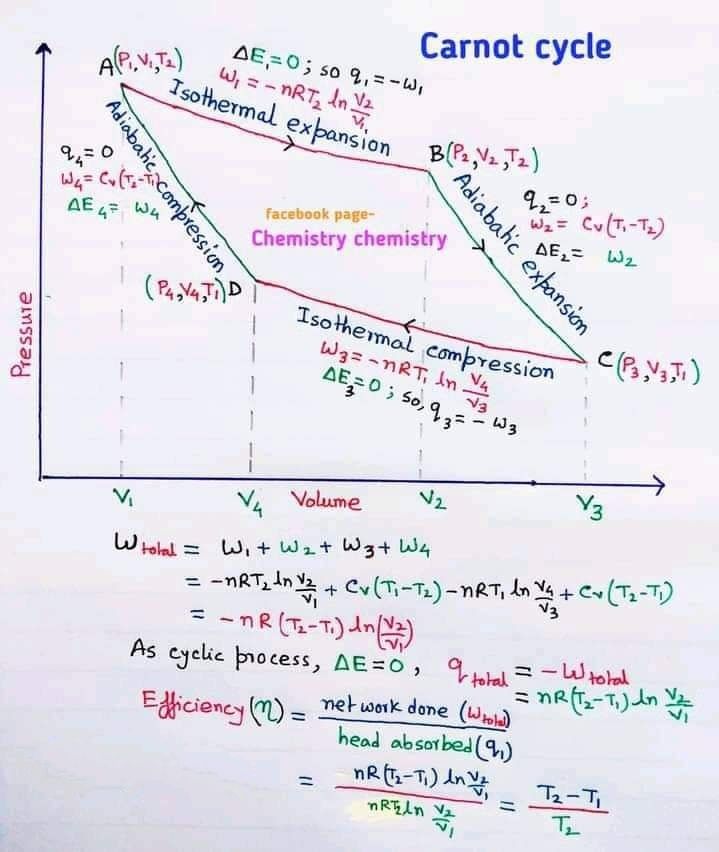 Carnot cycle
A(P₁,V₁,T₂)
ΔE₁=0 ; so q₁=-W₁
W₁ = -nRT₂ ln V₂/V₁
Isothermal expansion
B(P₂,V₂,T₂)
Adiabatic compression
q₄=0
W₄= Cv(T₂-T₁)
ΔE₄= W₄
q₂=0;
W₂= Cv(T₁-T₂)
ΔE₂= W₂
Adiabatic expansion
facebook page-
Chemistry chemistry
(P₄,V₄,T₁)D
Isothermal compression
W₃=-nRT₁ ln V₄/V₃
ΔE₃=0 ; so, q₃=-W₃
C(P₃,V₃,T₁)
Pressure
V₁
V₄
Volume
V₂
V₃
W total = W₁ + W₂ + W₃ + W₄
= -nRT₂ ln V₂/V₁ + Cv(T₁-T₂) -nRT₁ ln V₄/V₃ + Cv(T₂-T₁)
= -nR(T₂-T₁) ln(V₂/V₁)
As cyclic process, ΔE=0, q total = -W total
= nR(T₂-T₁) ln V₂/V₁
Efficiency(η) = net work done (W total) / head absorbed(q₁)
= nR(T₂-T₁) ln V₂/V₁ / nRT₂ ln V₂/V₁ = T₂-T₁ / T₂